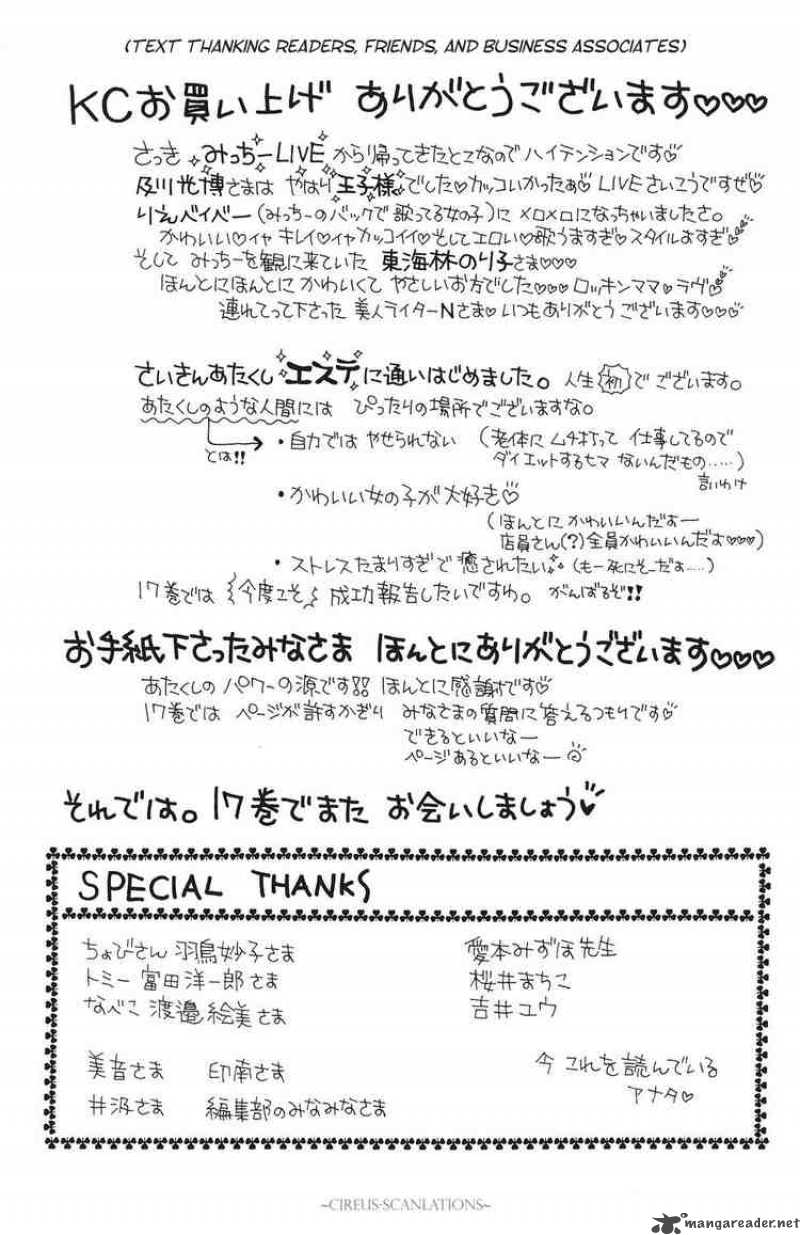 (TEXT THANKING READERS, FRIENDS, AND BUSINESS ASSOCIATES)
KCお買い上げ ありがとうございます♡♡♡
さっき みっちーLIVEから帰ってきたとこなので ハイテンションです♡
及川光博さまは やはり王子様でした♡カッコいかったぁ♡ LIVEさいこうですぜ♡
りえベイベー(みっちーのバックで歌ってる女の子)に メロメロになっちゃいましたさ。
かわいい♡イヤ キレイ♡イヤカッコイイ♡そしてエロい♡歌うますぎ♡スタイルよすぎ♡
そして みっちーを観に来ていた 東海林のり子さま♡♡♡
ほんとにほんとに かわいくて やさしいお方でした♡♡♡ロッキンママ♡ラヴ♡
連れてって下さった 美人ライターNさま♡いつもありがとうございます♡♡♡
さいきんあたくし エステに通いはじめました。人生初でございます。
あたくしのような人間には ぴったりの場所でございますな。
とは!!
・自力では やせられない (老体にムチ打って 仕事してるので
ダイエットするヒマ ないんだもの.....)
言いわけ
・かわいい女の子が大好き♡
(ほんとに かわいいんだよー
店員さん(?)全員かわいいんだよ♡♡♡)
・ストレスたまりすぎで癒されたい (もー死にそーだよ.....)
17巻では 今度こそ 成功報告したいですわ。がんばるぞ!!
お手紙下さったみなさま ほんとにありがとうございます♡♡♡
あたくしの パワーの源です ほんとに感謝です♡
17巻では ページが許すかぎり みなさまの質問に答えるつもりです♡
できるといいなー
ページあるといいなー
それでは。17巻でまた お会いしましょう♡
SPECIAL THANKS
ちょびさん 羽鳥妙子さま
トミー 富田洋一郎さま
なべこ 渡邉絵美さま
美音さま 印南さま
井汲さま 編集部のみなみなさま
愛本みずほ先生
桜井まちこ
吉井ユウ
今 これを読んでいる
アナタ♡
~CIREUS-SCANLATIONS~
mangareader.net